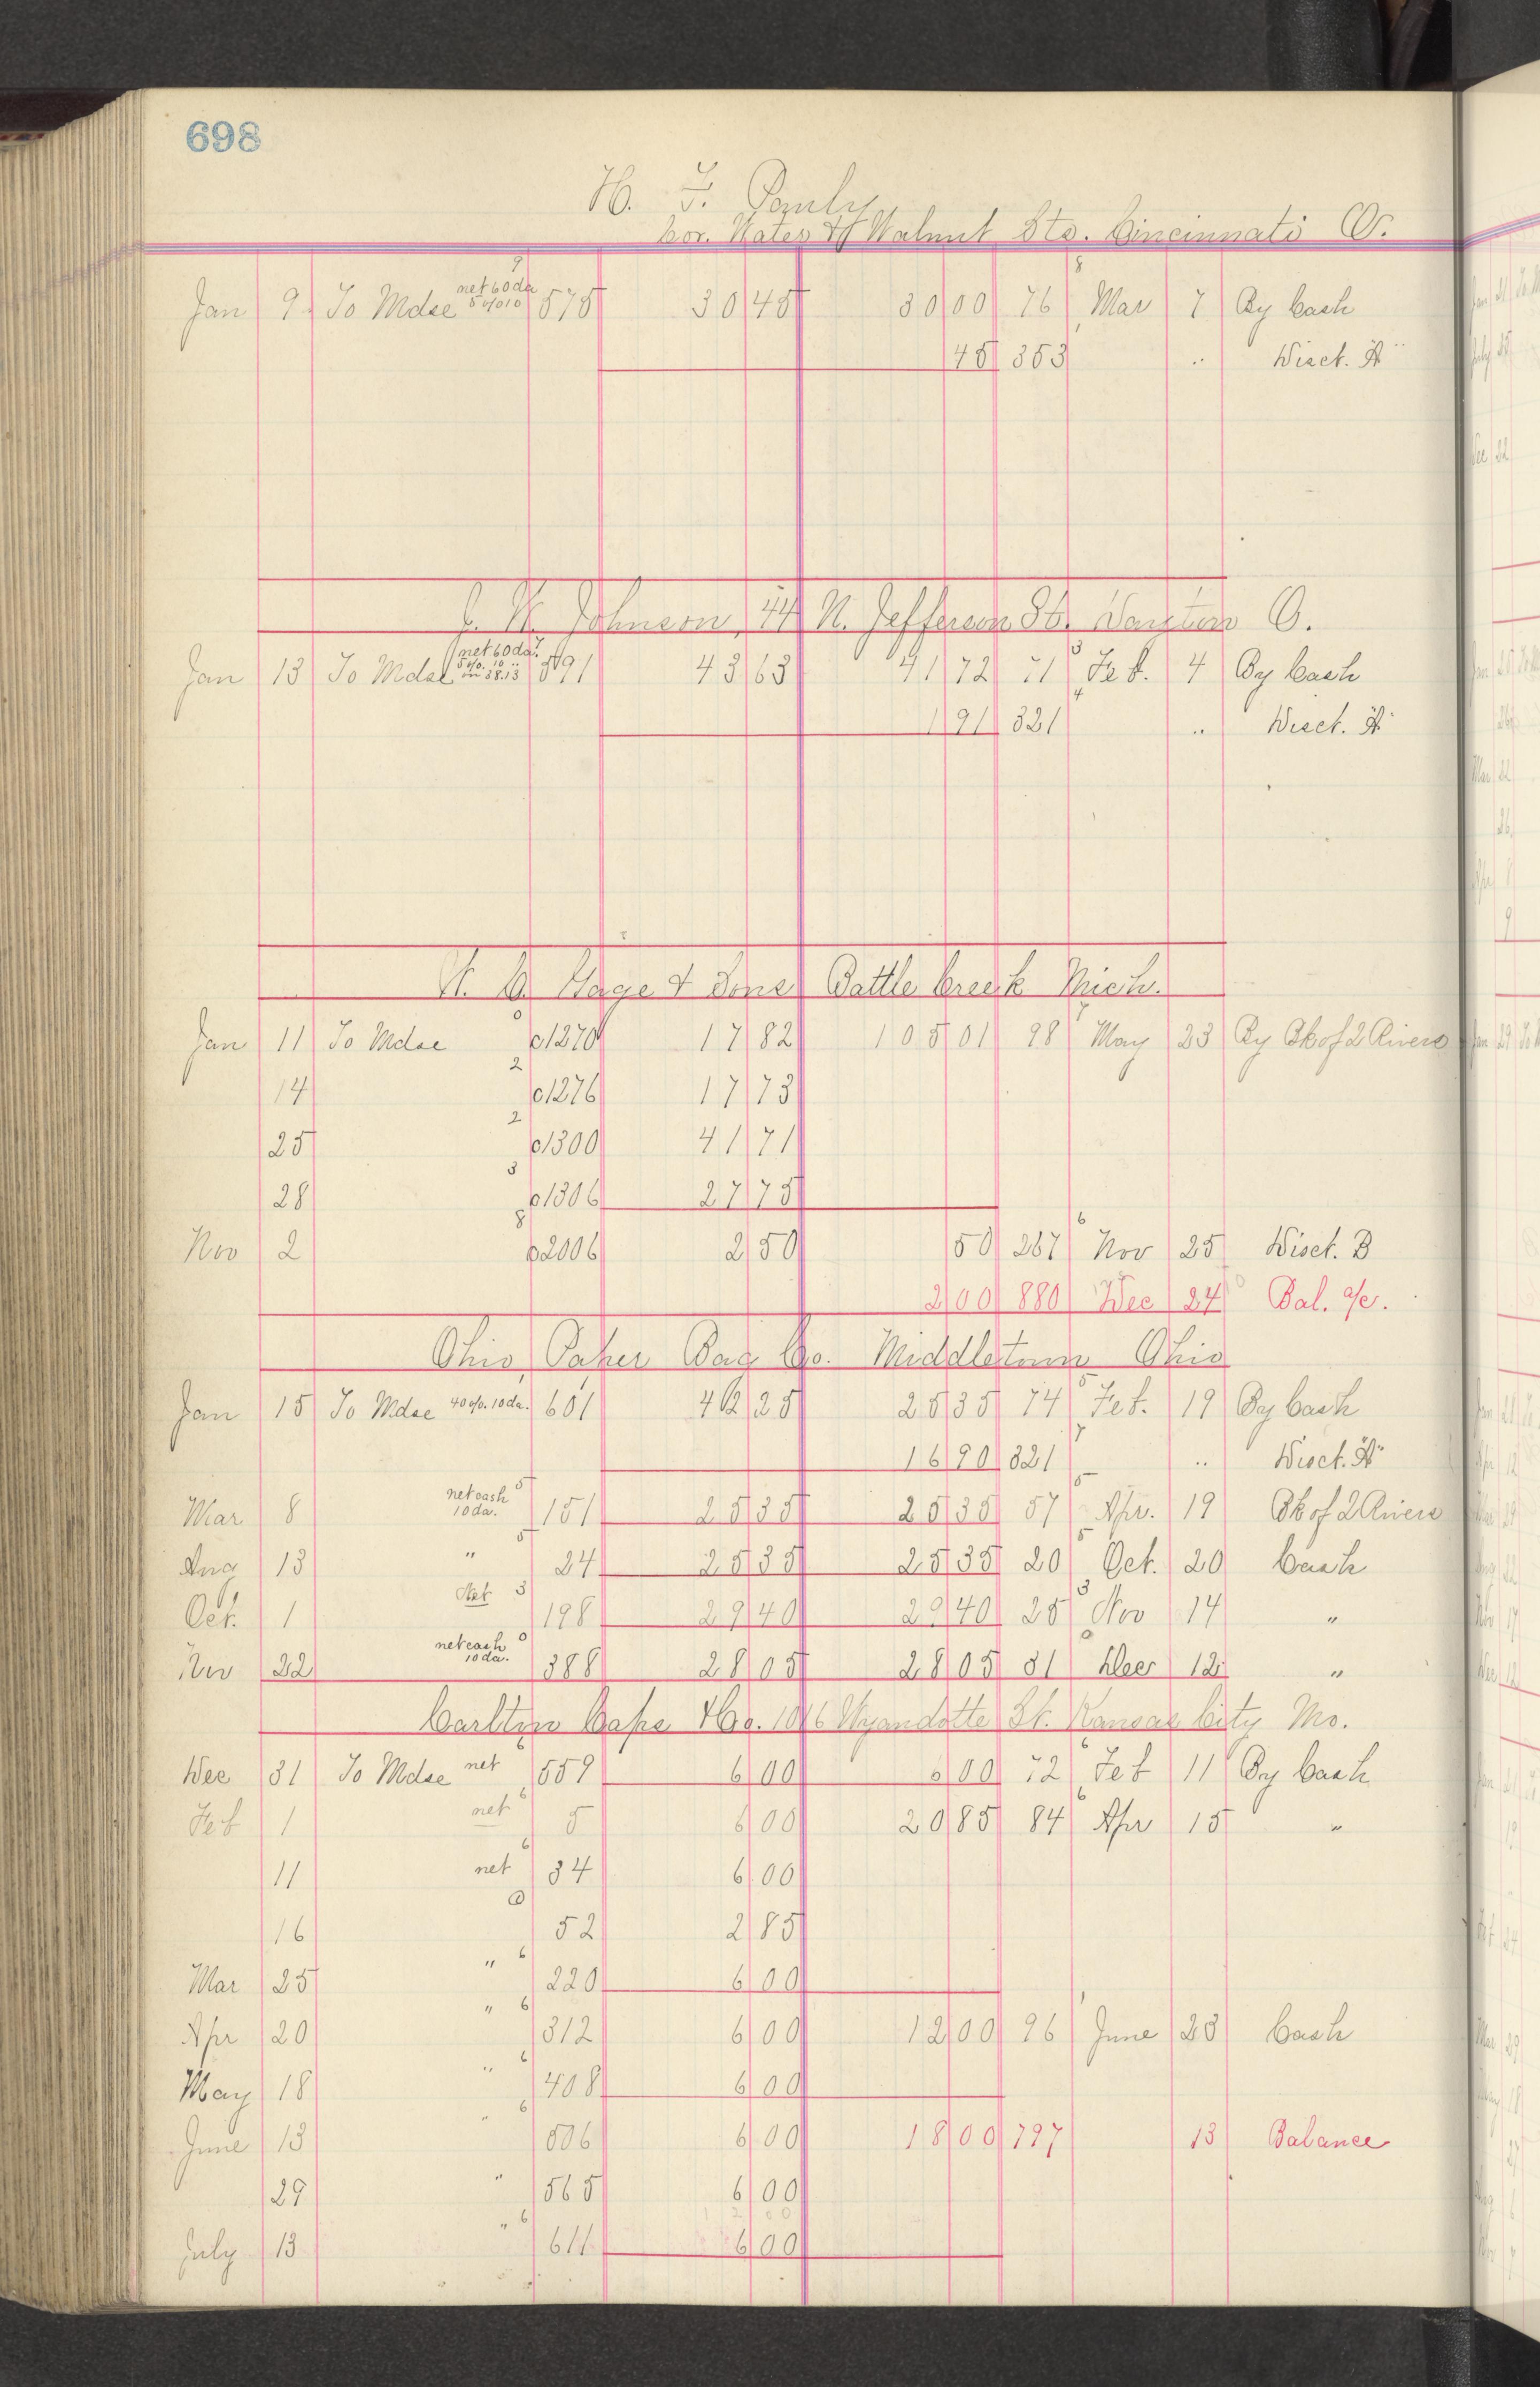 698
H. F. Pauly
Cor. Water & Walnut Sts. Cincinnati O.
Jan 9 To Mdse net 60 da 5% 10 9 575 30 45 30 00 76 8 Mar 7 By Cash
45 353 " Disct. "A"
44 N. Jefferson St. Dayton O.
Jan 13 To Mdse net 60 da. 5%. 10 " on 38.13 7 591 43 63 41 72 71 3 Feb. 4 By Cash
1 91 321 4 " Disct. "A"
& Sons Battle Creek Mich.
Jan 11 To Mdse 0 C1270 17 82 105 01 98 7 May 23 By Bk of 2 Rivers
14 2 C1276 17 73
25 2 C1300 41 71
28 3 C1306 27 75
Nov 2 8 C2006 2 50 50 267 6 Nov 25 Disct. B
2 00 880 Dec 24 Bal. a/c.
Ohio Paper Bag Co. Middletown Ohio
Jan 15 To Mdse 40%. 10 da. 601 42 25 25 35 74 5 Feb. 19 By Cash
16 90 321 7 " Disct. "A"
Mar 8 net cash 10 da. 5 151 25 35 25 35 57 5 Apr. 19 Bk of 2 Rivers
Aug 13 " 5 24 25 35 25 35 20 5 Oct. 20 Cash
Oct. 1 Net 3 198 29 40 29 40 25 3 Nov 14 "
Nov 22 net cash 10 da. 0 388 28 05 28 05 31 0 Dec 12 "
Carlton Cape & Co. 1016 Wyandotte St. Kansas City Mo.
Dec 31 To Mdse net 6 559 6 00 6 00 72 6 Feb 11 By Cash
Feb 1 net 6 5 6 00 20 85 84 6 Apr 15 "
11 net 6 34 6 00
16 0 52 2 85
Mar 25 " 6 220 6 00
Apr 20 " 6 312 6 00 12 00 96 June 23 Cash
May 18 " 6 408 6 00
June 13 " 6 506 6 00 18 00 797 13 Balance
29 " 565 6 00
July 13 " 6 611 6 00